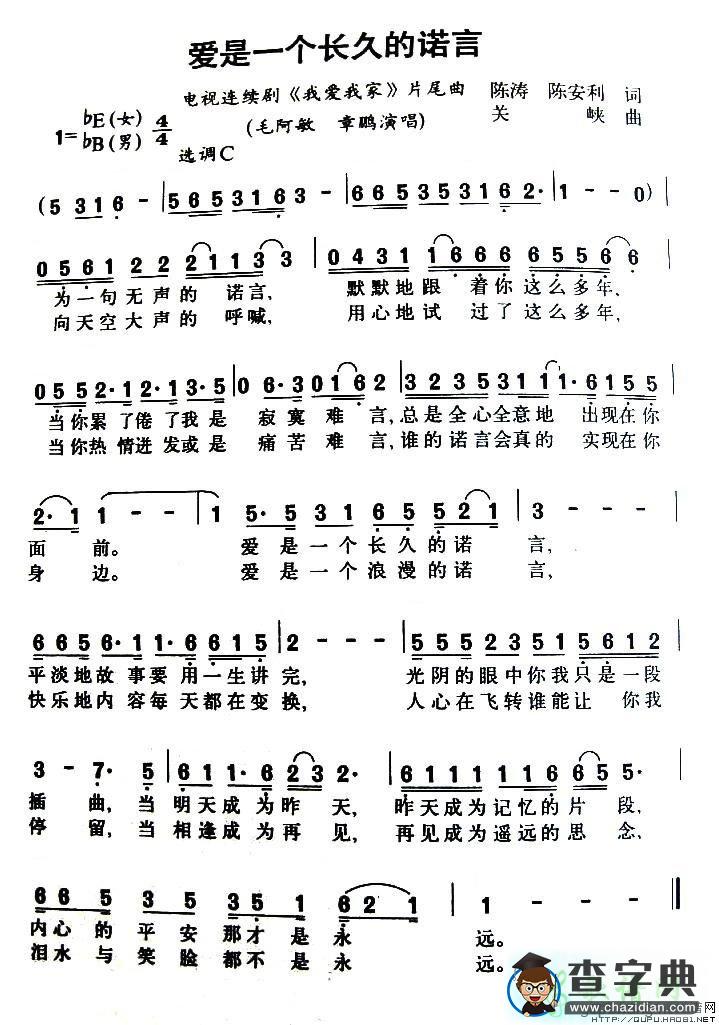 爱是一个长久的诺言
电视连续剧《我爱我家》片尾曲 陈涛 陈安利 词
(毛阿敏 章鹏演唱) 关 峡 曲
1= ♭E(女) ♭B(男) 4/4
选调C
(5 3 1 6 - | 5 6 5 3 1 6 3 - | 6 6 5 3 5 3 1 6 2· | 1 - - 0) |
0 5 6 1 2 2 2 1 1 3 3 | 0 4 3 1 1 6 6 6 6 5 5 6 6 |
为一句无声的 诺言, 默默地跟 着你这么多年,
向天空大声的 呼喊, 用心地试 过了这么多年,
0 5 5 2· 1 2· 1 3· 5 | 0 6· 3 0 1 6 2 | 3 2 3 5 3 1 1 1· 6 1 5 5 |
当你累了倦了我是 寂寞难言,总是全心全意地 出现在你
当你热情迸发或是 痛苦难言,谁的诺言会真的 实现在你
2· 1 1 - - | 1 5· 5 3 1 6 5 5 2 1 | 3 - - - |
面 前。 爱是一个长久的诺 言,
身 边。 爱是一个浪漫的诺 言,
6 6 5 6· 1 1· 6 6 1 5 | 2 - - - | 5 5 5 2 3 5 1 5 6 1 2 |
平淡地故事要用一生讲 完, 光阴的眼中你我只是一段
快乐地内容每天都在变 换, 人心在飞转谁能让 你我
3 - 7· 5 | 6 1 1· 6 2 3 2· | 6 1 1 1 1· 6 6 5 5· |
插 曲,当 明天成为昨 天, 昨天成为记忆的片 段,
停 留,当 相逢成为再 见, 再见成为遥远的思 念,
6 6 5 3 5 3 5 1 6 2 1 | 1 - - - ‖
内心的平安那才是永 远。
泪水与笑脸都不是永 远。
查字典
www.chazidian.com
HTTP://QUPU.HAO81.NET